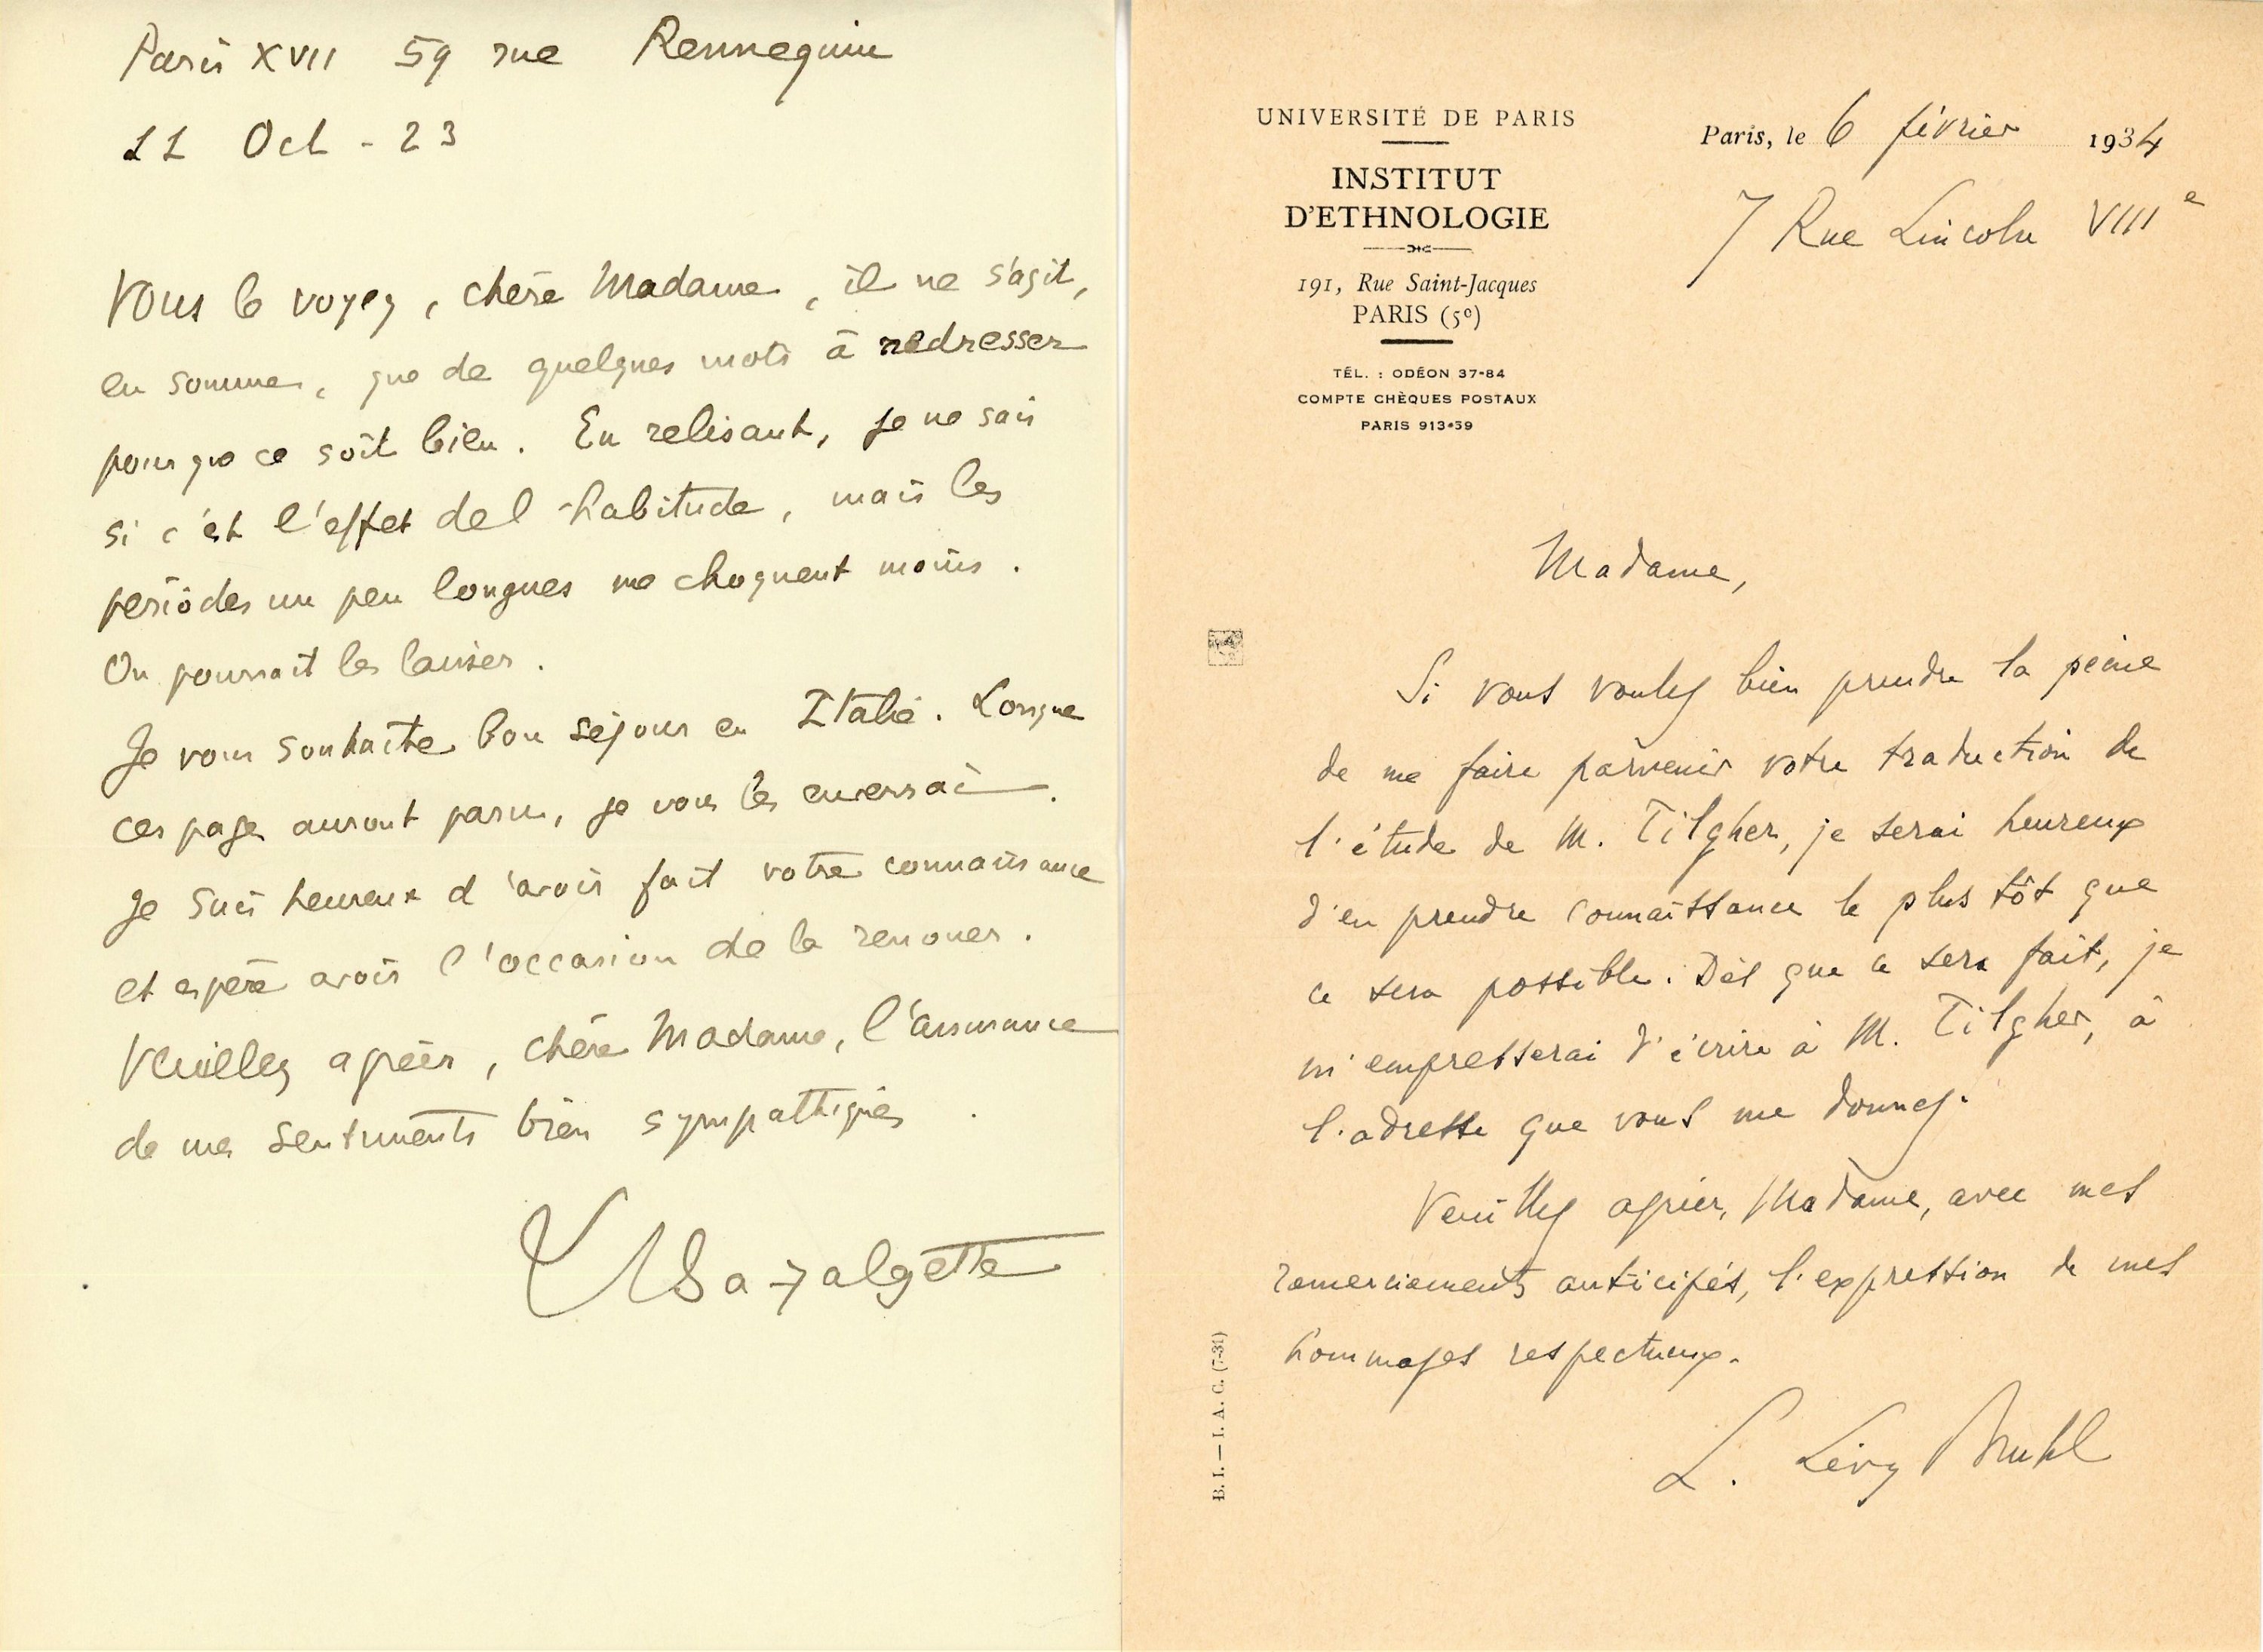 Paris XVII 59 rue Rennequin
11 Oct - 23
Vous le voyez, chère Madame, il ne s'agit,
en somme, que de quelques mots à redresser
pour que ce soit bien. En relisant, je ne sais
si c'est l'effet de l'habitude, mais les
périodes un peu longues me choquent moins.
On pourrait les laisser.
Je vous souhaite bon séjour en Italie. Lorsque
ces pages auront paru, je vous les enverrai.
Je suis heureux d'avoir fait votre connaissance
et espère avoir l'occasion de la renouer.
Veuillez agréer, chère Madame, l'assurance
de mes sentiments bien sympathiques.
Bazalgette
UNIVERSITÉ DE PARIS
INSTITUT
D'ETHNOLOGIE
191, Rue Saint-Jacques
PARIS (5e)
TÉL. : ODÉON 37-84
COMPTE CHÈQUES POSTAUX
PARIS 913-59
Paris, le 6 février 1934
7 Rue Lincoln VIIIe
Madame,
Si vous voulez bien prendre la peine
de me faire parvenir votre traduction de
l'étude de M. Tilgher, je serai heureux
d'en prendre connaissance le plus tôt que
ce sera possible. Dès que ce sera fait, je
m'empresserai d'écrire à M. Tilgher, à
l'adresse que vous me donnez.
Veuillez agréer, Madame, avec mes
remerciements anticipés, l'expression de mes
hommages respectueux.
L. Lévy Bruhl
B. I. — I. A. C. (7-31)